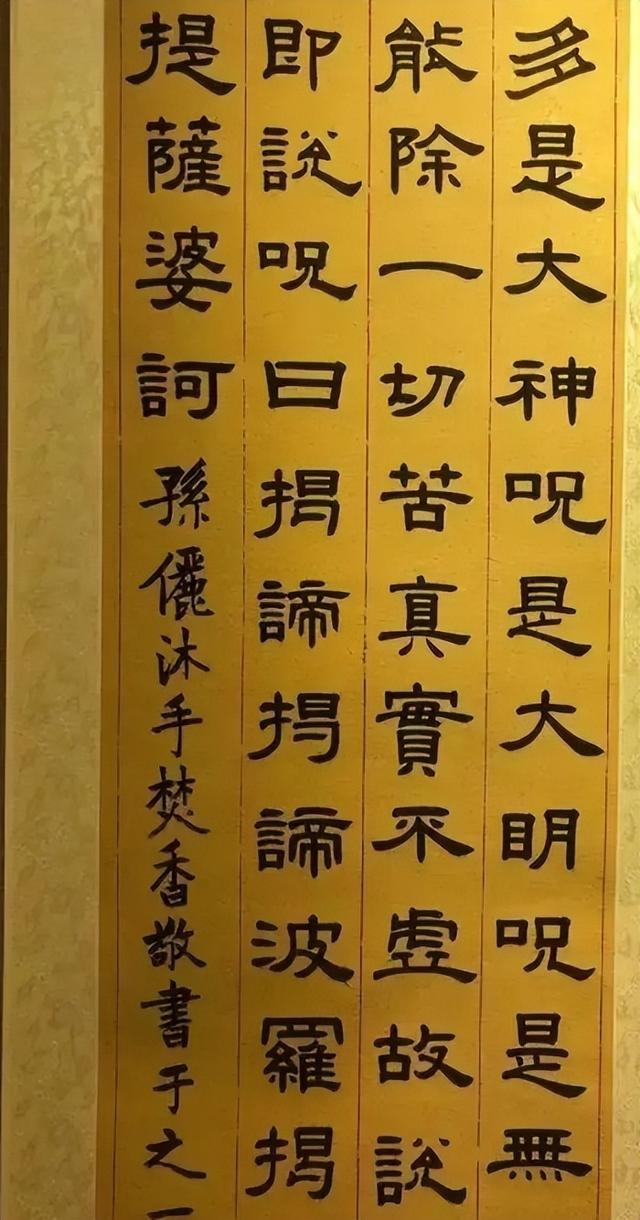 多是大神呪是大明呪是無
能除一切苦真實不虛故說
即說呪曰揭諦揭諦波羅揭
提薩婆訶孫儷沐手焚香敬書于之一